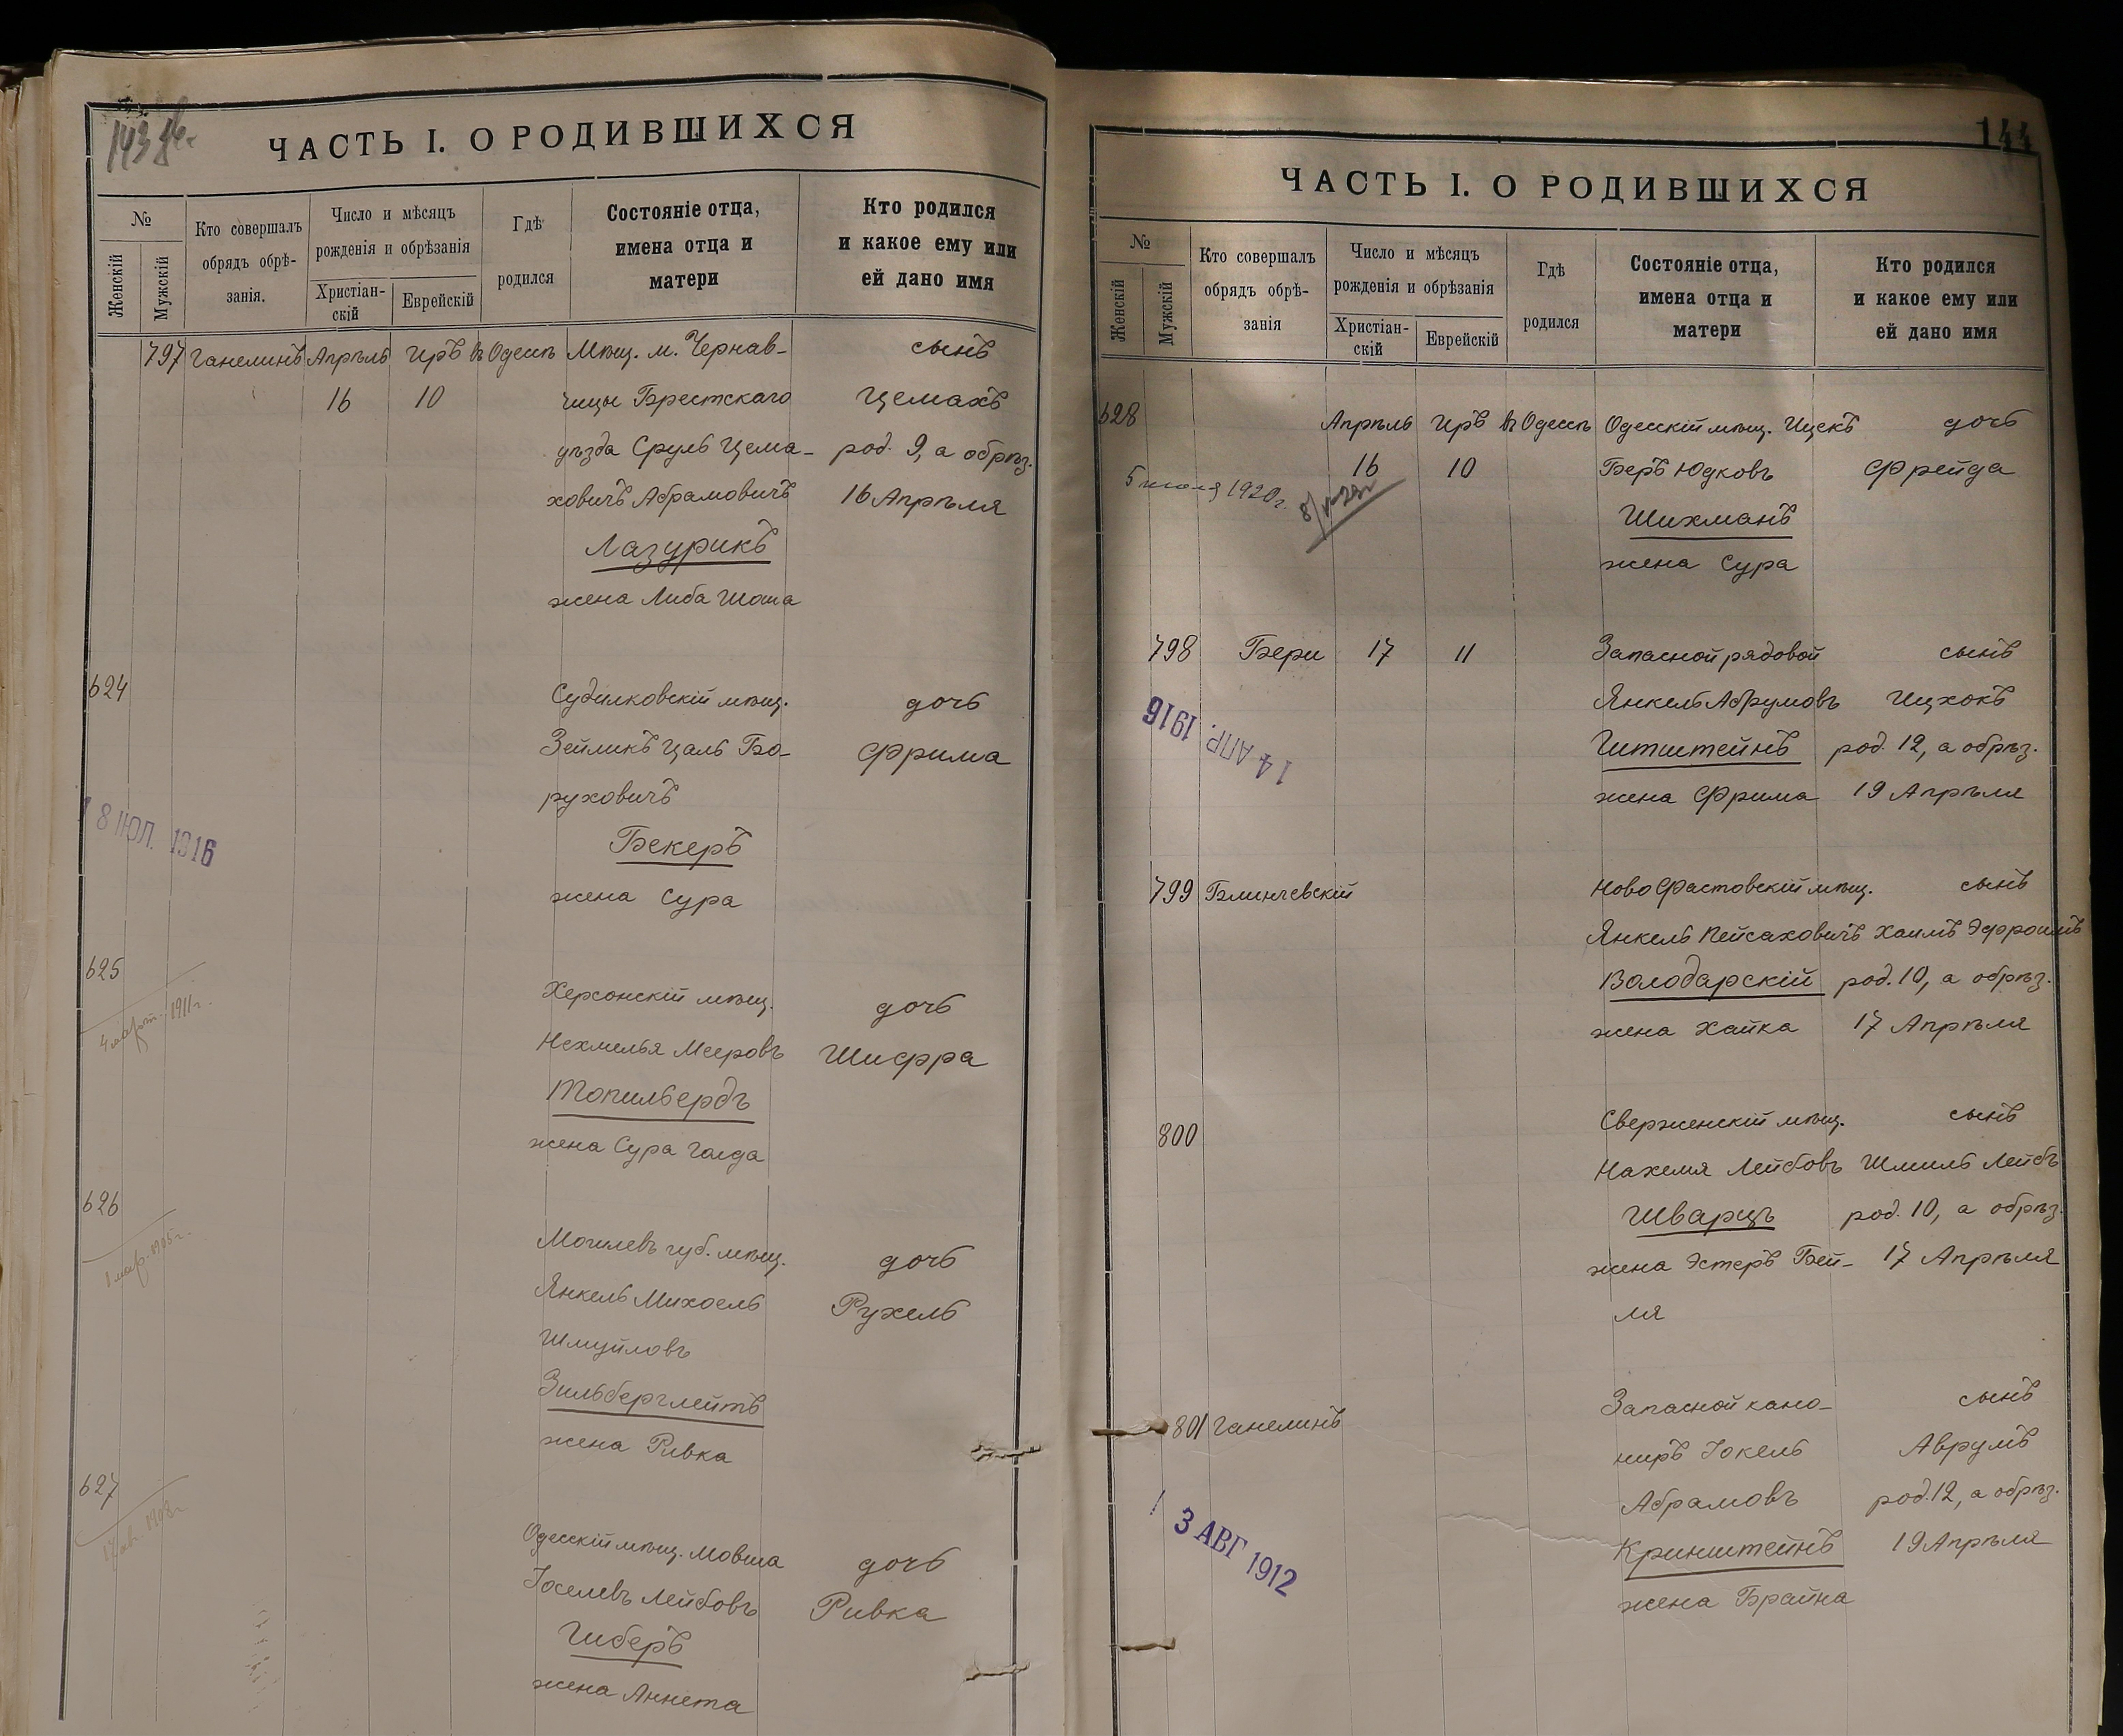 143 об.
ЧАСТЬ I. О РОДИВШИХСЯ
№
Женскій
Мужскій
Кто совершалъ
обрядъ обрѣ-
занія.
Число и мѣсяцъ
рожденія и обрѣзанія
Христіан-
скій
Еврейскій
Гдѣ
родился
Состояніе отца,
имена отца и
матери
Кто родился
и какое ему или
ей дано имя
797 Ганелинъ Апрѣль Иръ въ Одессѣ Мѣщ. м. Чернав- сынъ
16 10 чицы Брестскаго Цемахъ
уѣзда Сруль Цема- род. 9, а обрѣз.
ховичъ Абрамовичъ 16 Апрѣля
Лазурикъ
жена Либа Шоша
624
Судилковскій мѣщ. дочь
Зейликъ Цаль Бо- Фрима
руховичъ
18 ІЮЛ. 1916
Бекеръ
жена Сура
625
Херсонскій мѣщ. дочь
4 март. 1911 г.
Нехмелья Мееровъ Шифра
Топильбердъ
жена Сура Голда
626
Могилевъ губ. мѣщ. дочь
1 мар. 1905 г.
Янкель Михоель Рухель
Шмуйловъ
Зильберглейтъ
жена Ривка
627
Одесскій мѣщ. Мовша дочь
Іоселевъ Лейбовъ Ривка
Гиберъ
жена Аннета
144
ЧАСТЬ I. О РОДИВШИХСЯ
№
Женскій
Мужскій
Кто совершалъ
обрядъ обрѣ-
занія
Число и мѣсяцъ
рожденія и обрѣзанія
Христіан-
скій
Еврейскій
Гдѣ
родился
Состояніе отца,
имена отца и
матери
Кто родился
и какое ему или
ей дано имя
628 Апрѣль Иръ въ Одессѣ Одесскій мѣщ. Ицекъ дочь
16 10 Беръ Юдковъ Фрейда
5 1920 г.
Шихманъ
жена Сура
798 Бери 17 11 Запасной рядовой сынъ
Янкель Абрумовъ Ицхокъ
14 АПР. 1916
Гитштейнъ род. 12, а обрѣз.
жена Фрима 19 Апрѣля
799 Блинчевскій Ново Фастовскій мѣщ. сынъ
Янкель Пейсаховичъ Хаимъ Эфроимъ
Володарскій род. 10, а обрѣз.
жена Хайка 17 Апрѣля
800 Сверженскій мѣщ. сынъ
Нахемя Лейбовъ Шмиль Лейбъ
Шварцъ род. 10, а обрѣз.
жена Эстеръ Бей- 17 Апрѣля
ля
801 Ганелинъ Запасной кано- сынъ
ниръ Іокель Аврумъ
Абрамовъ род. 12, а обрѣз.
3 АВГ 1912
Кринштейнъ 19 Апрѣля
жена Брайна